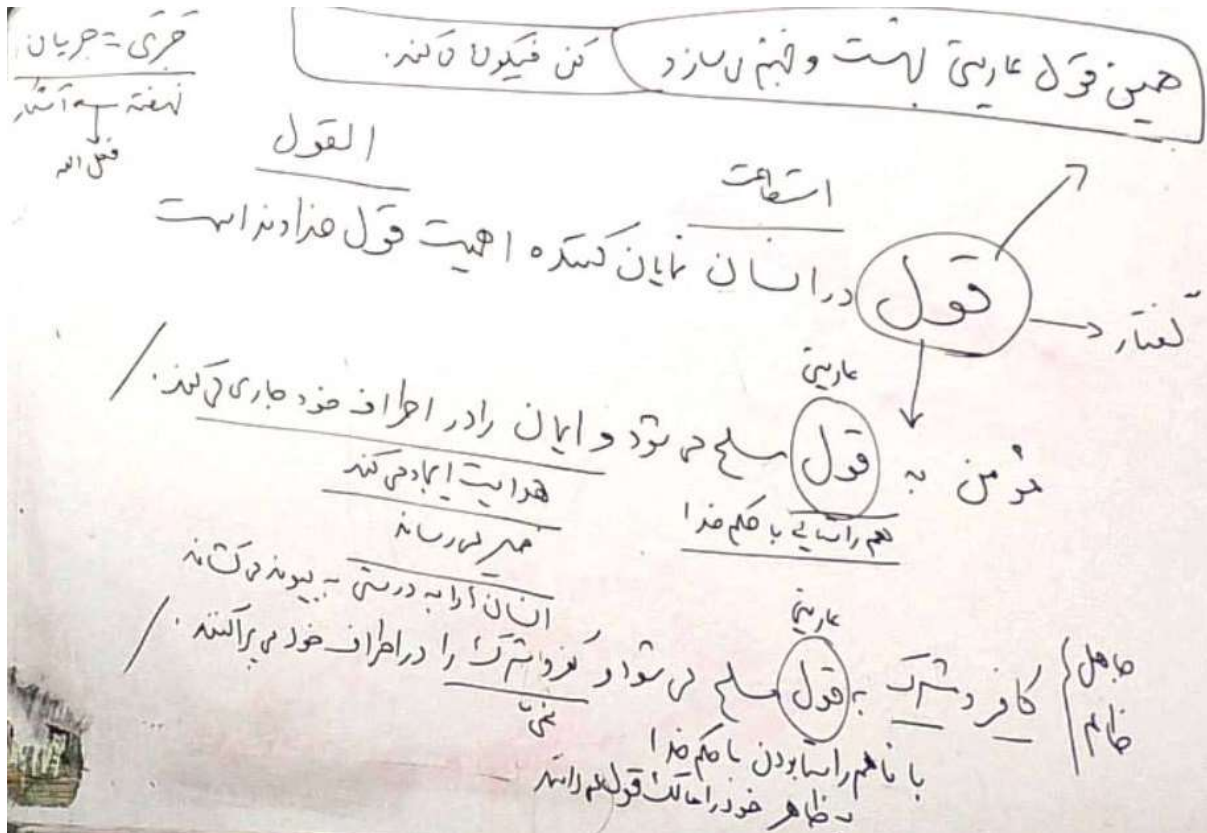 همین قول عاریتی بهشت و جهنم می‌سازد
کن فیکون می‌کند.
جَرَی = جریان
نهفته → آشکار
فعل الله
القول
استطاعت
قول در انسان نمایان کننده اهمیت قول خداوند است
گفتار
عاریتی
مؤمن به قول مسلح می‌شود و ایمان را در اطراف خود جاری می‌کند.
هم راستایی با حکم خدا
هدایت ایجاد می‌کند
خیر می‌رساند
انسان را به درستی به پیوند می‌کشاند
عاریتی
جاهل
ظالم
کافر و مشرک به قول مسلح می‌شود و کفر و شرک را در اطراف خود می‌پراکند.
با ناهم راستا بودن با حکم خدا
به ظاهر خود را مالک قول می‌داند